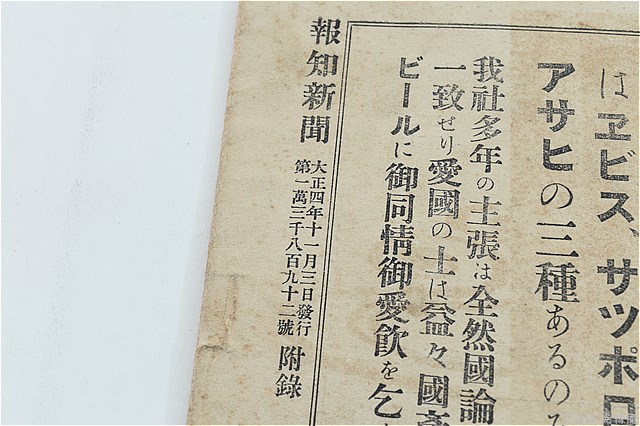 はヱビス、サツポロ
アサヒの三種あるのみ
我社多年の主張は全然國論
一致せり愛國の士は益々國產
ビールに御同情御愛飮を乞
報知新聞
大正四年十一月三日發行
第一萬三千八百九十二號
附錄